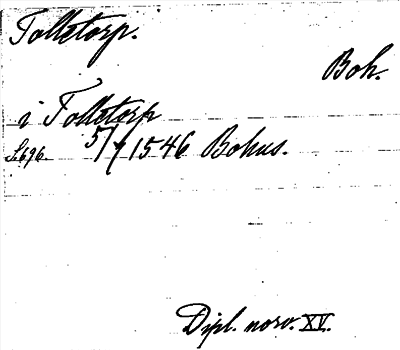 Tolletorp.
Boh.
i Tolletorp
S. 696. 5/7 1546 Bohus.
Dipl. norv. XV.